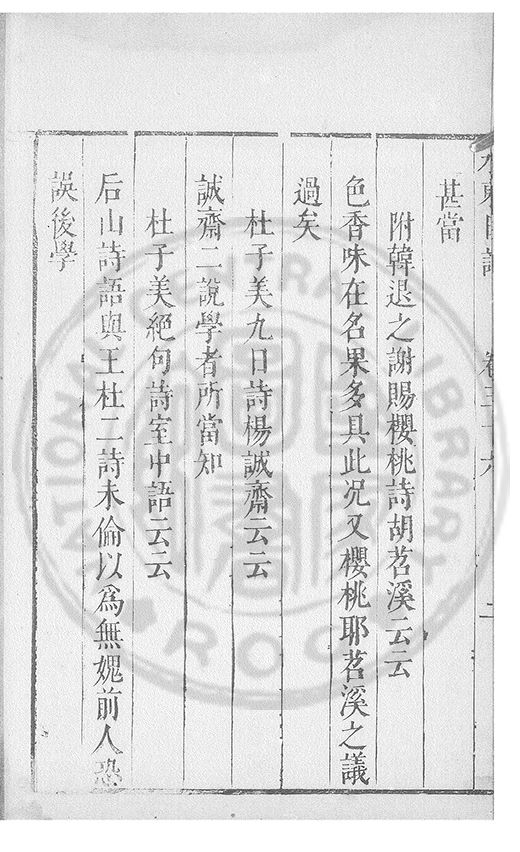 水東日記　卷三十六　二
甚當
附韓退之謝賜櫻桃詩胡苕溪云云
色香味在名果多具此况又櫻桃耶苕溪之議
過矣
杜子美九日詩楊誠齋云云
誠齋二說學者所當知
杜子美絕句詩室中語云云
后山詩語與王杜二詩未倫以爲無媿前人恐
誤後學